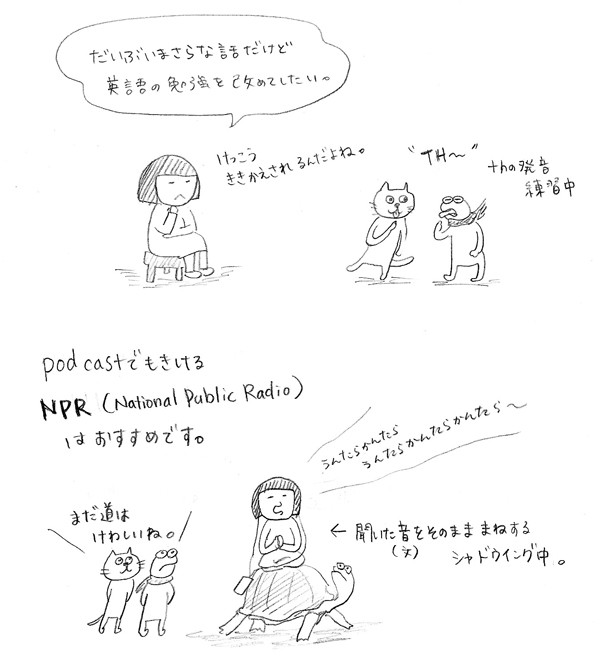 だいぶいまさらな話だけど
英語の勉強を改めてしたい。
けっこう
ききかえされるんだよね。
"TH〜"
thの発音
練習中
podcastでもきける
NPR (National Public Radio)
はおすすめです。
うんたらかんたら
うんたらかんたらかんたら〜
まだ道は
けわしいね。
← 聞いた音をそのまままねする
(文)
シャドウイング中。